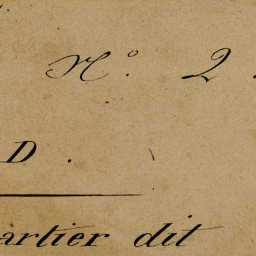 N.º 2.
D.
artier dit